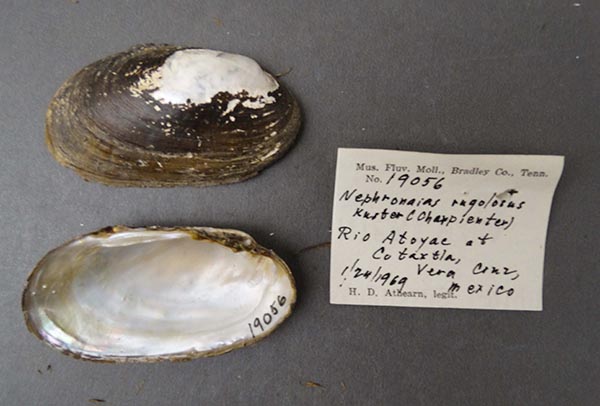 Mus. Fluv. Moll., Bradley Co., Tenn.
No. 19056
Nephronaias rugolosus
Kuster (Charpienter)
Rio Atoyac at
Cotaxtla,
Vera Cruz,
1/24/1969 Mexico
H. D. Athearn, legit.
19056